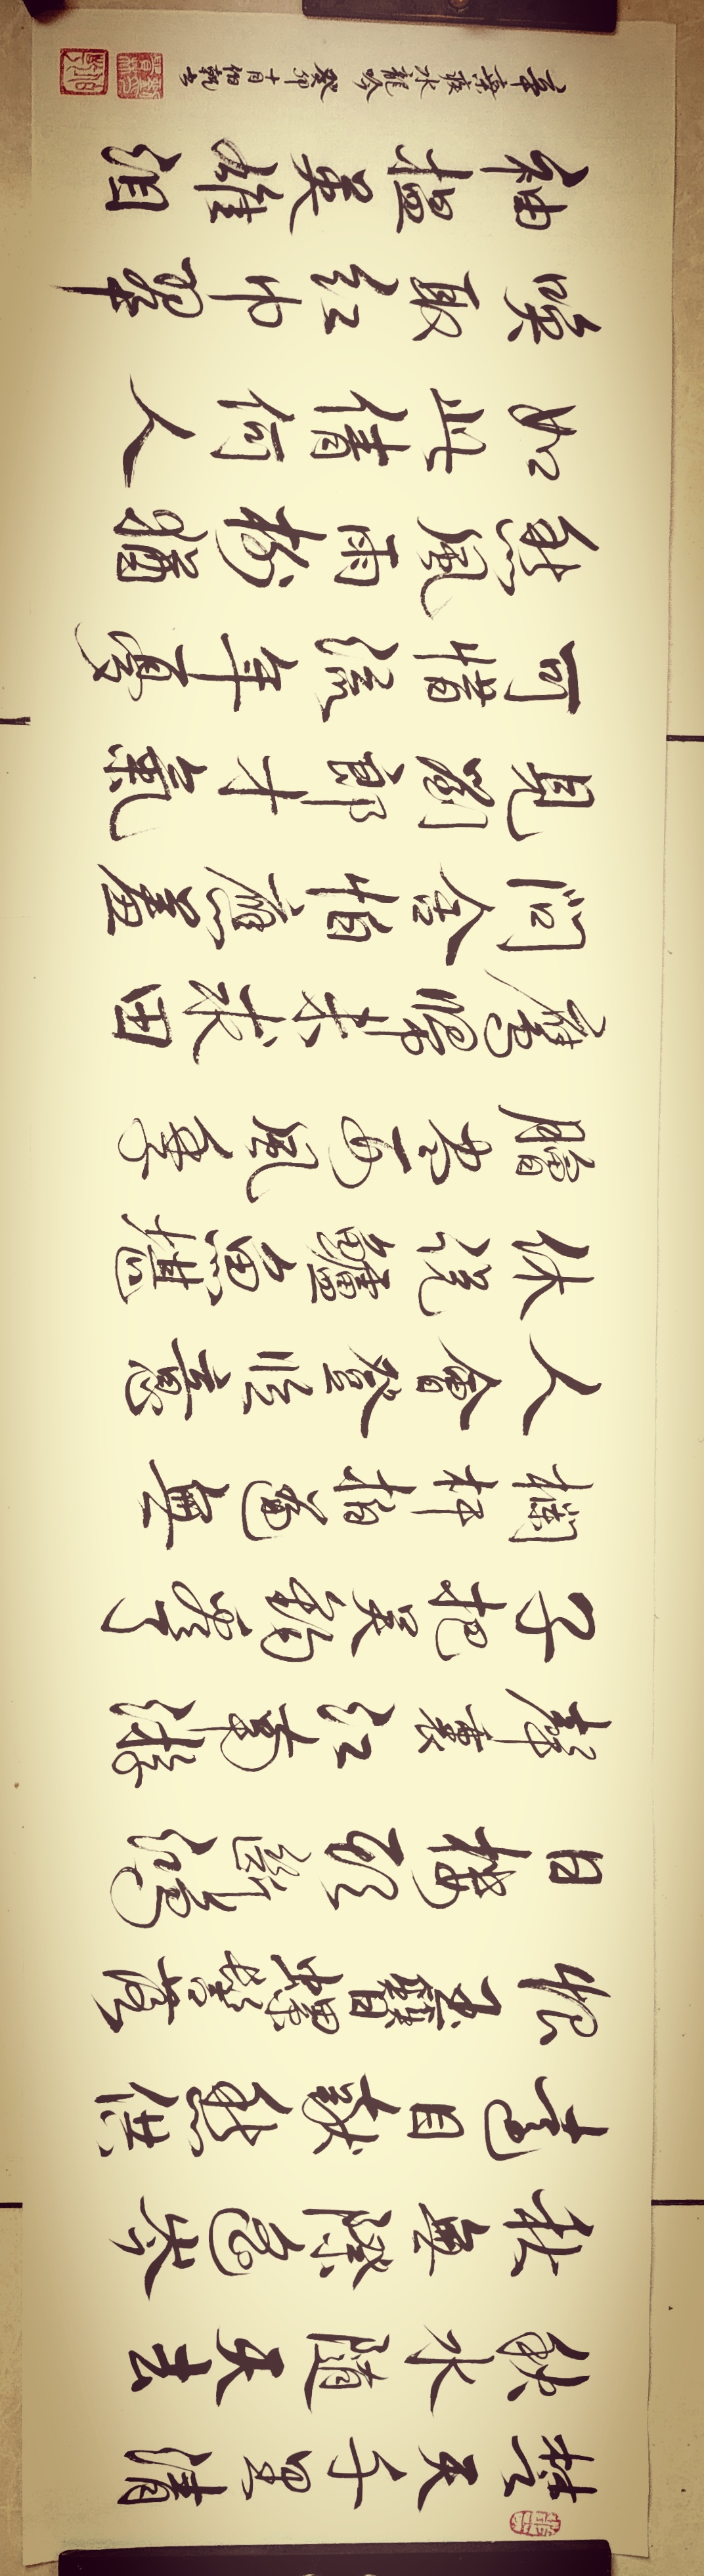 楚天千里清
秋水隨天去
秋無際遙岑
遠目獻愁供
恨玉簪螺髻落
日樓頭斷鴻
聲裏江南游
子把吳鉤看了
欄杆拍遍無
人會登臨意
休說鱸魚堪
膾盡西風季
鷹歸未求田
問舍怕應羞
見劉郎才氣
可惜流年憂
愁風雨樹猶
如此倩何人
喚取紅巾翠
袖搵英雄淚
辛棄疾水龍吟 癸卯十月伯乾書